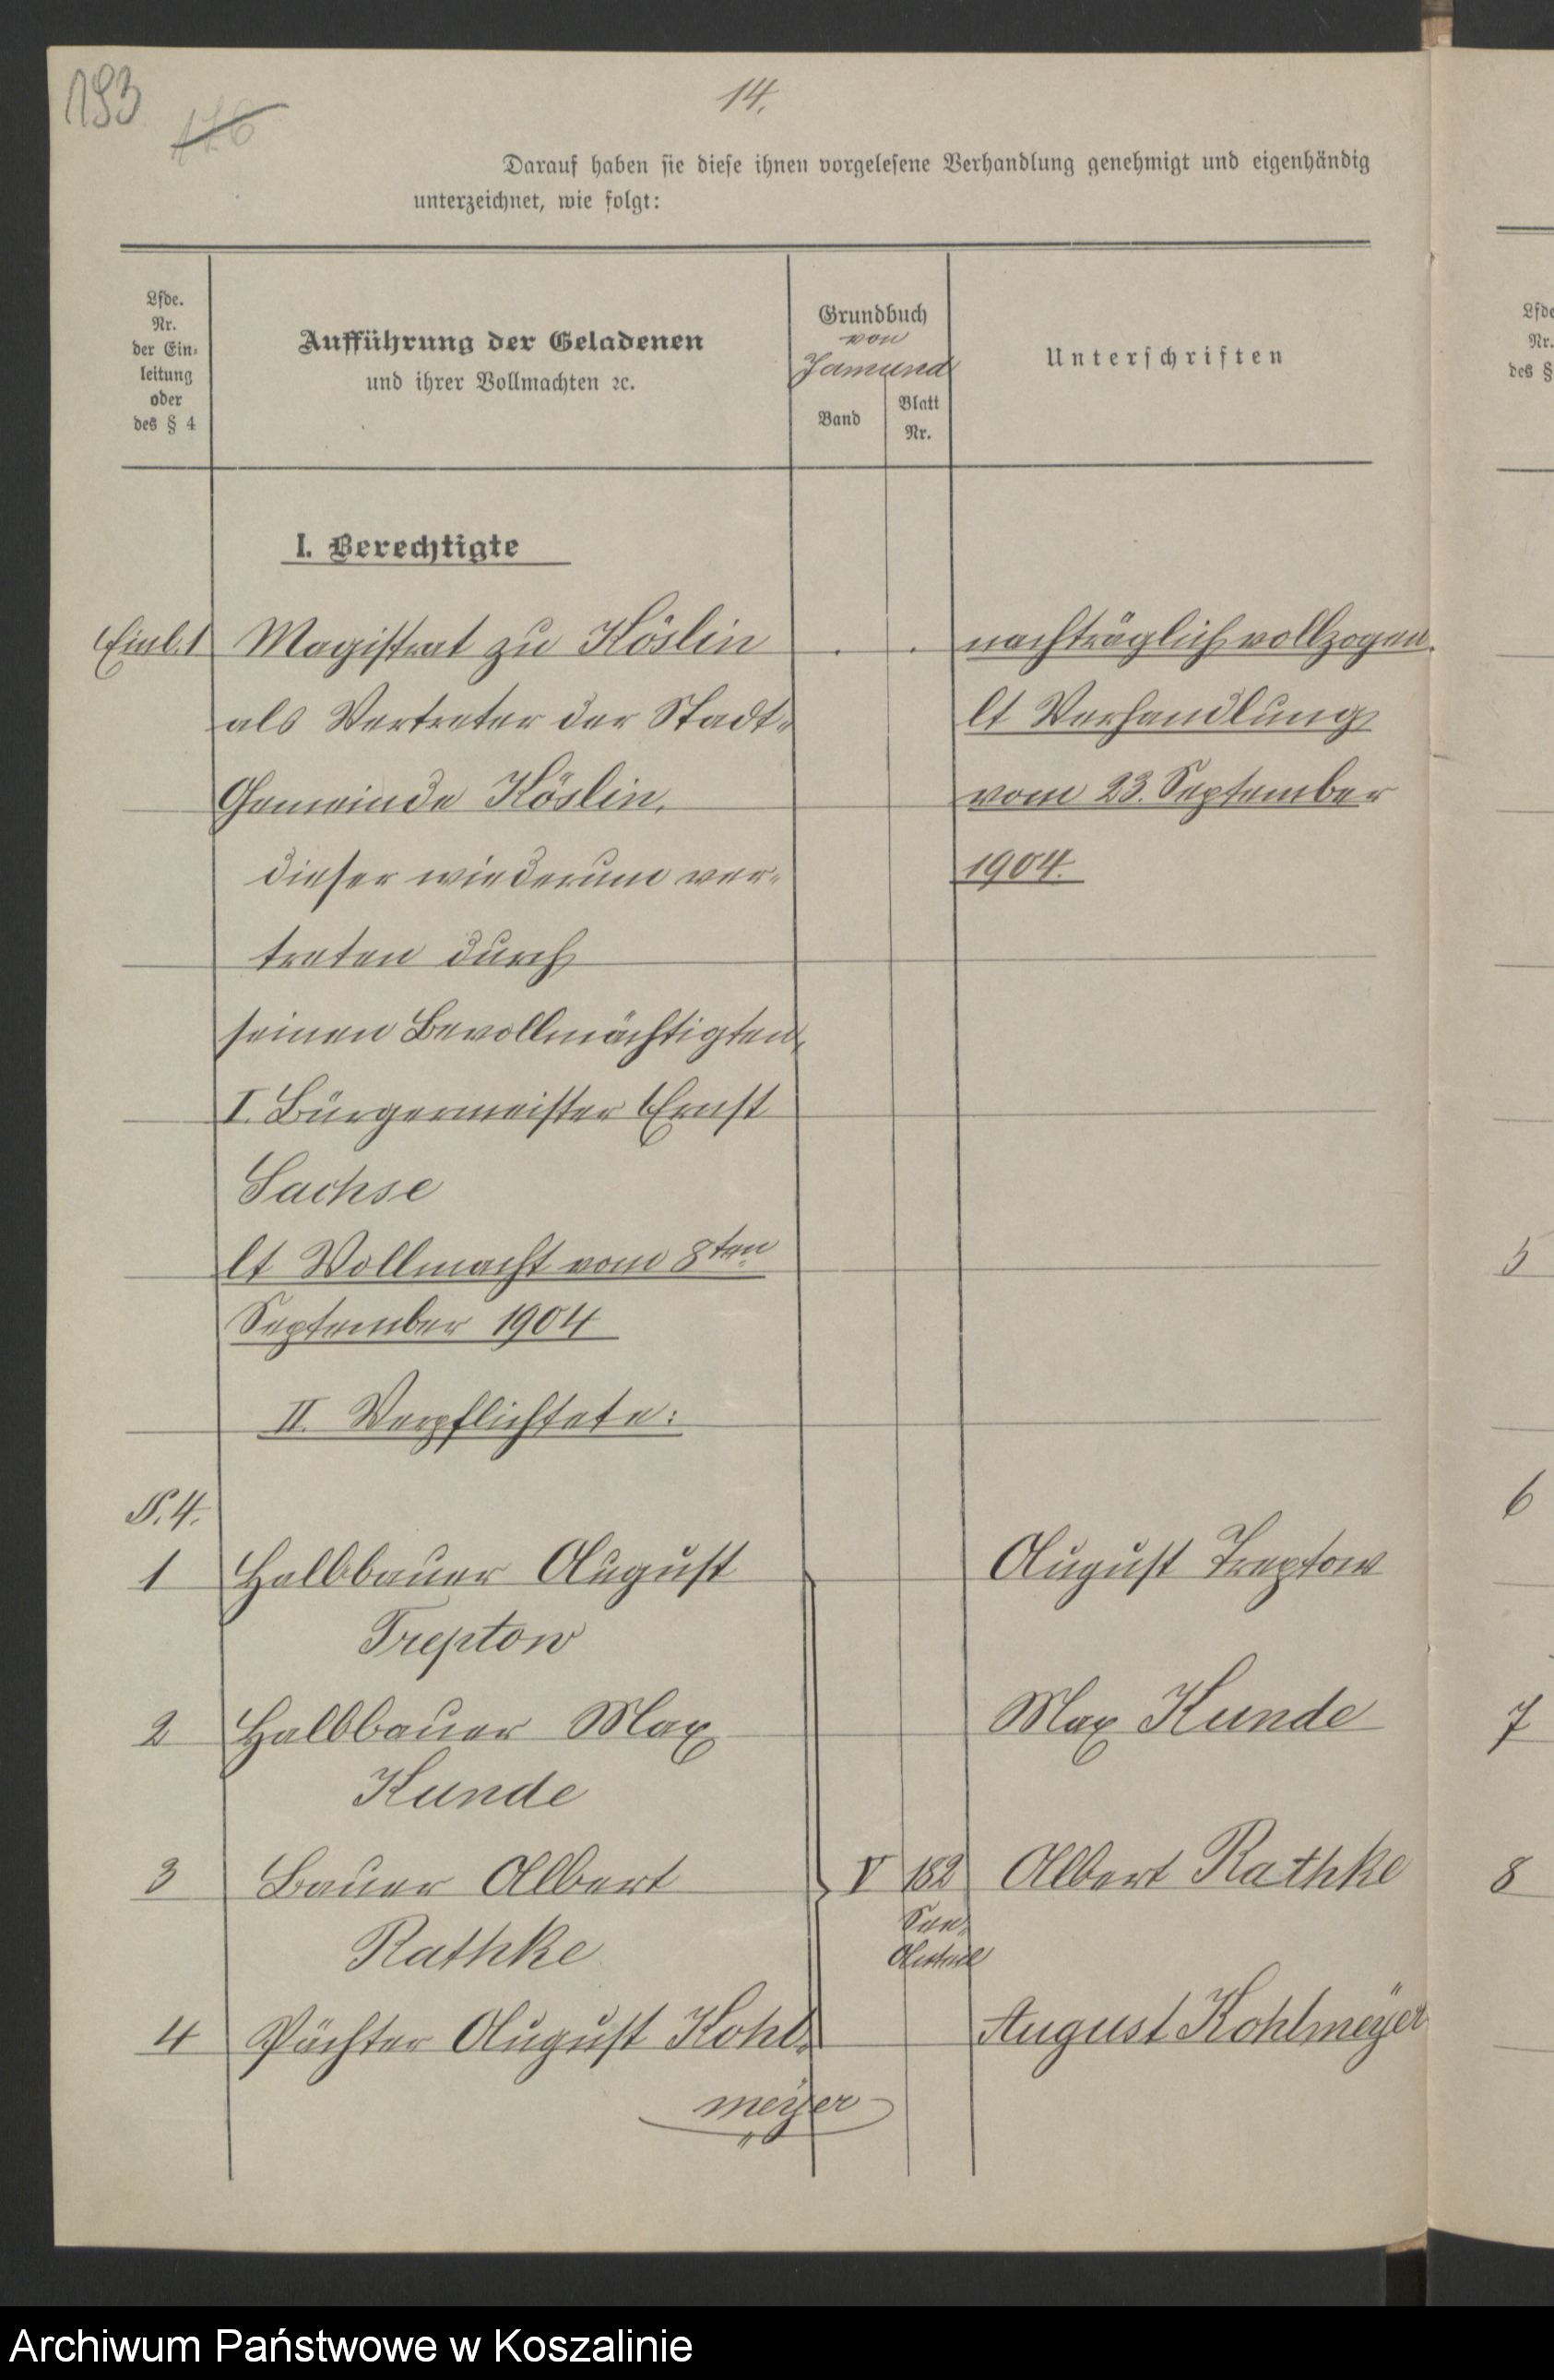 193
176
14.
Darauf haben sie diese ihnen vorgelesene Verhandlung genehmigt und eigenhändig
unterzeichnet, wie folgt:
Lfde.
Nr.
der Ein-
leitung
oder
des § 4
Aufführung der Geladenen
und ihrer Vollmachten ꝛc.
Grundbuch
von
Jamund
Band
Blatt
Nr.
Unterschriften
Lfde
Nr.
des §
I. Berechtigte
Einl. 1 Magistrat zu Köslin . . nachträglich vollzogen.
als Vertreter der Stadt- lt Verhandlung
Gemeinde Köslin, vom 23. September
dieser wiederum ver- 1904.
treten durch
seinen Bevollmächtigten,
I. Bürgermeister Ernst
Sachse
lt Vollmacht vom 8ten
September 1904
5
II. Verpflichtete:
§. 4.
6
1 Halbbauer August August Treptow
Treptow
2 Halbbauer Max Max Kunde
7
Kunde
3 Bauer Albert V 182 Albert Rathke
8
Rathke
4 Pächter August Kohl- August Kohlmeyer
meyer
Archiwum Państwowe w Koszalinie